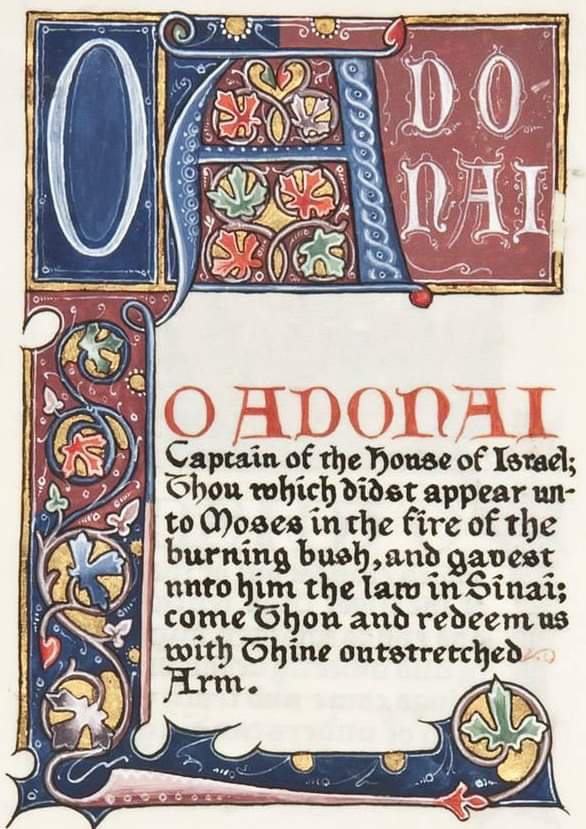 O ADO
NAI
O ADONAI
Captain of the House of Israel;
Thou which didst appear un-
to Moses in the fire of the
burning bush, and gavest
nnto him the law in Sinai;
come Thou and redeem us
with Thine outstretched
Arm.